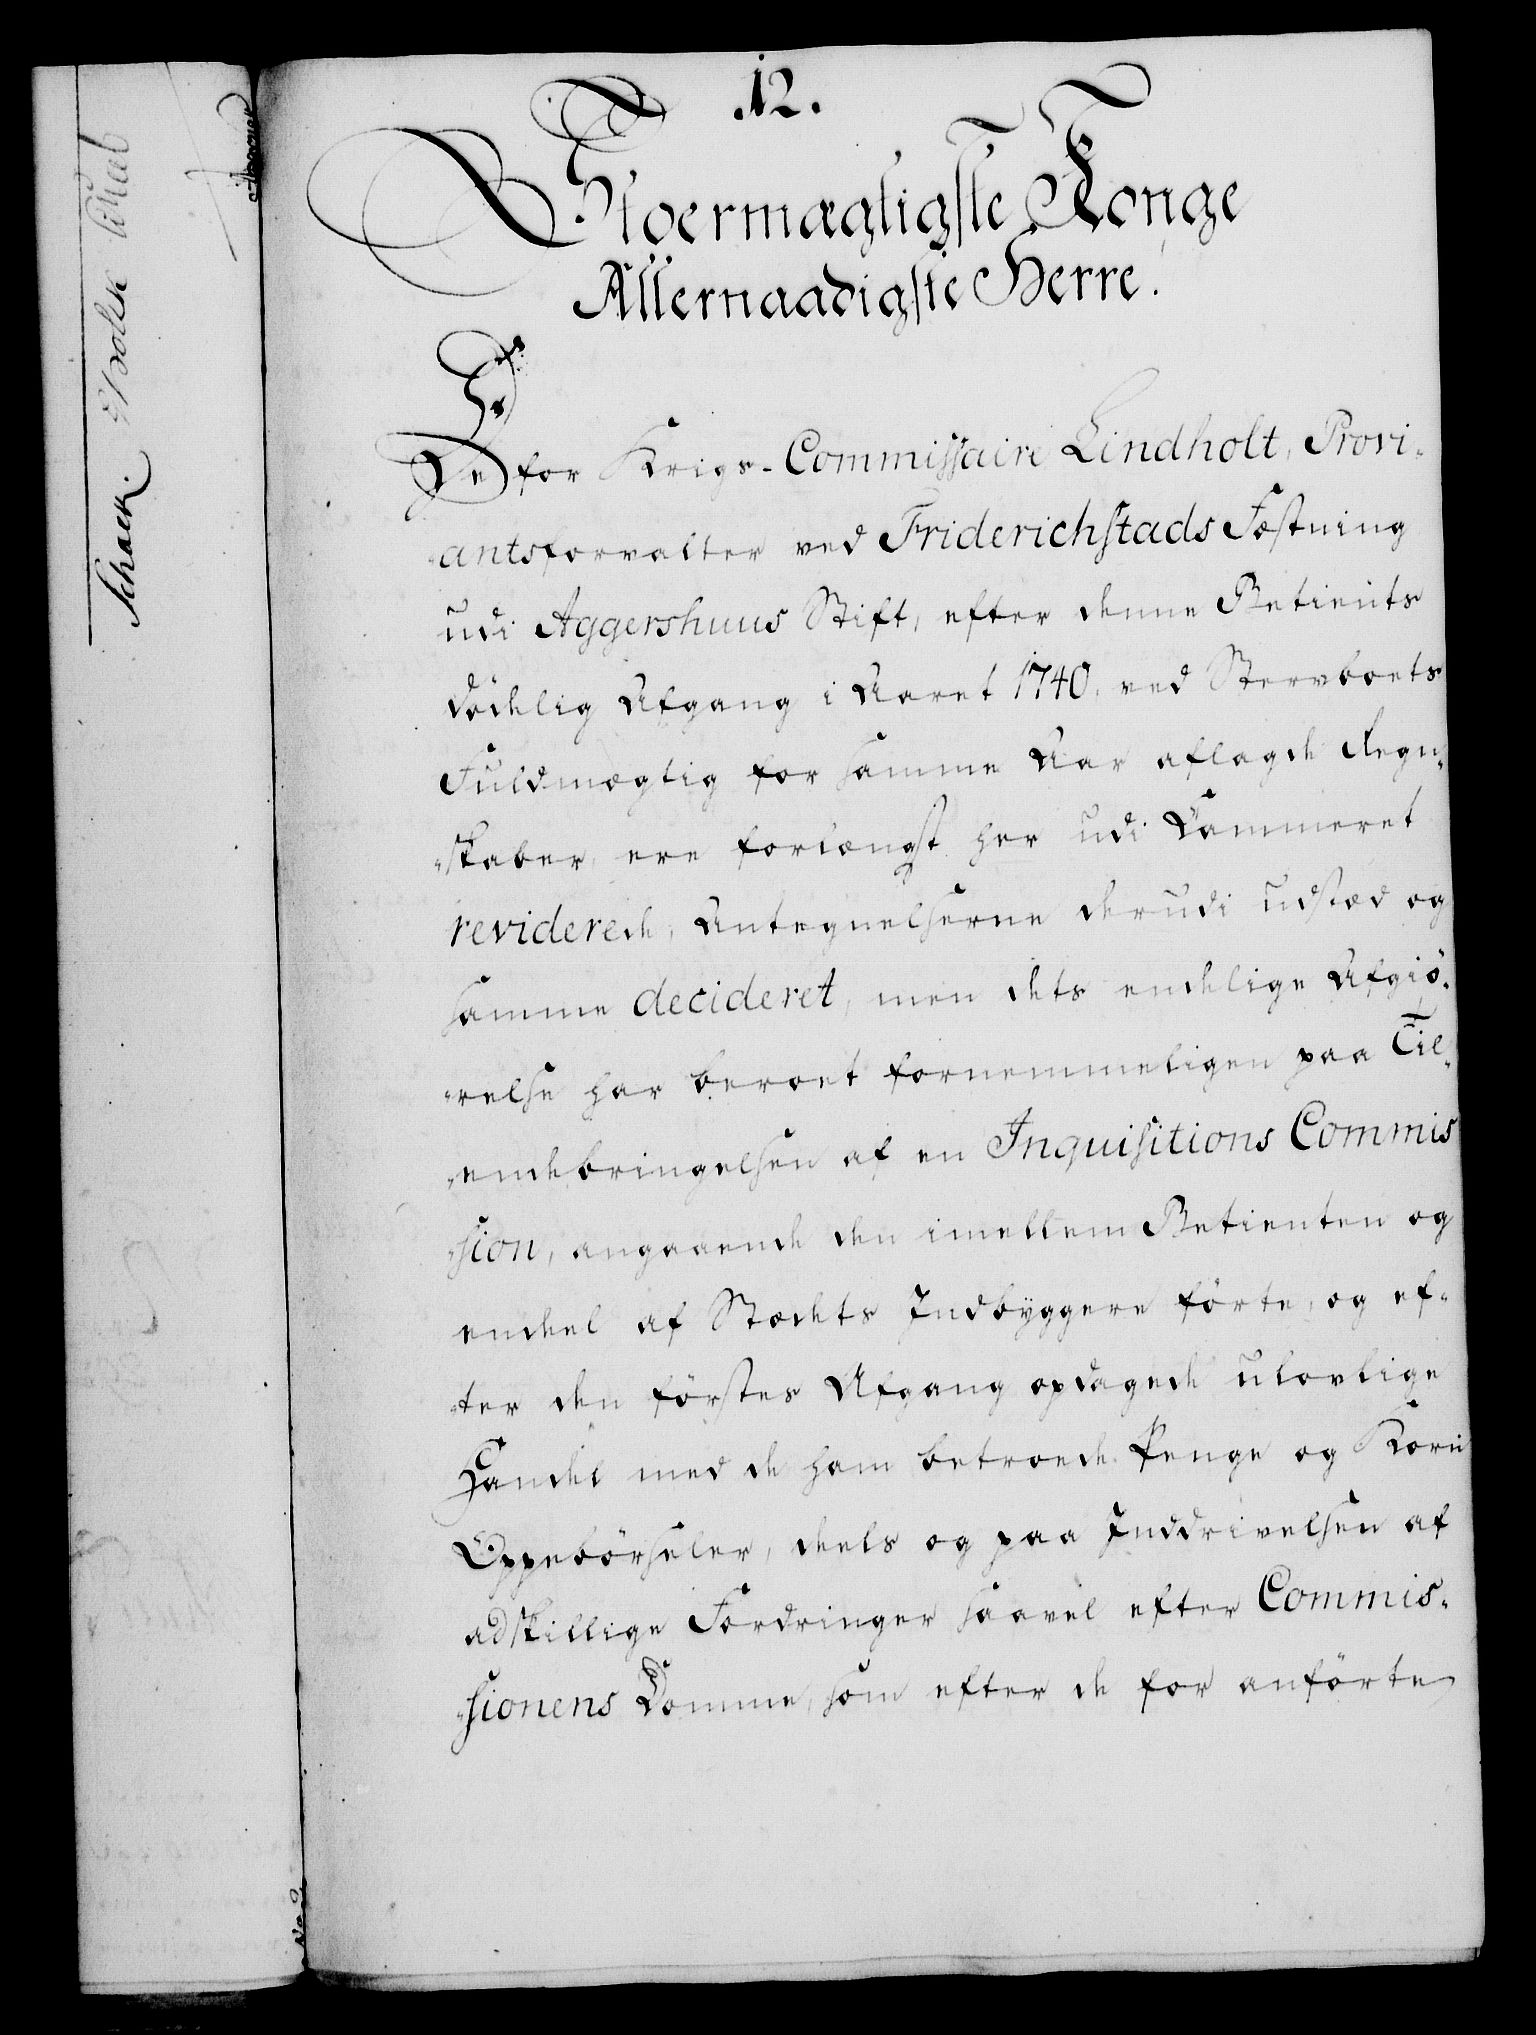 .12.
Stoermægtigste Konge
Allernaadigste Herre.
De for Krigs-Commissaire Lindholt, Provi-
antsforvalter ved Friderichstads Fæstning
udi Aggershuus Stift, efter denne Betients
dödelig Afgang i Aaret 1740, ved Stervboets
Fuldmægtig for samme Aar aflagde Regn-
skaber, ere forlængst her udi Kammeret
reviderede, Antegnelserne derudi udstæd og
samme decideret, men dets endelige Afgiö-
relse har beroet fornemmeligen paa Til-
endebringelsen af en Inquisitions Commis
sion, angaaende den imellem Betienten og
endeel af Stædets Indbyggere förte, og ef-
ter den förstes Afgang opdagede ulovlige
Handel med de ham betroede Penge og Korn
Oppebörseler, deels og paa Inddrivelsen af
adskillige Fordringer saavel efter Commis-
sionens Domme, som efter de for anförte
Schack.